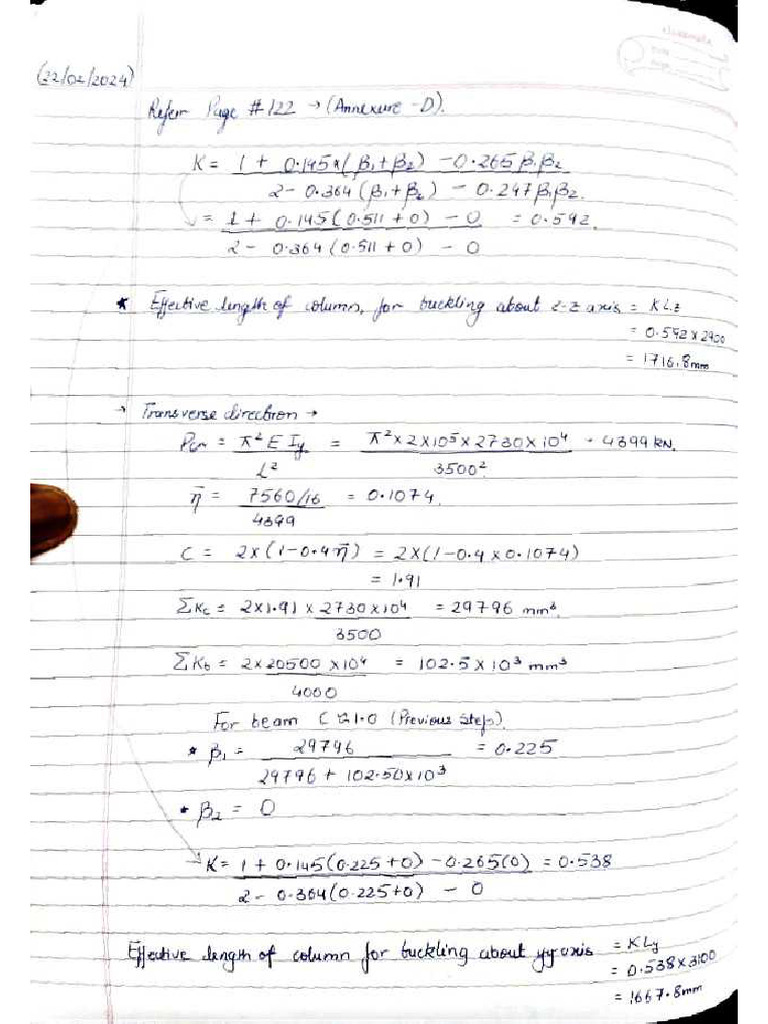 (22/02/2024)
Refer Page #122 → (Annexure-D).
K = 1 + 0.145*(β1+β2) - 0.265β1β2
2 - 0.364(β1+β2) - 0.247β1β2.
= 1 + 0.145(0.511+0) - 0 = 0.592.
2 - 0.364(0.511+0) - 0
* Effective length of column, for buckling about z-z axis = KLz
= 0.592×2900
= 1716.8mm
→ Transverse direction →
Pcr = π² E Iy = π² × 2 × 10⁵ × 2730 × 10⁴ = 4399 kN.
L² 3500²
η̄ = 7560/16 = 0.1074.
4399
C = 2×(1-0.4η̄) = 2×(1-0.4×0.1074)
= 1.91
ΣKc = 2×1.91 × 2730×10⁴ = 29796 mm³.
3500
ΣKb = 2×20500×10⁴ = 102.5×10³ mm³
4000
For beam C ≈ 1.0 (Previous Steps).
* β1 = 29796 = 0.225
29796 + 102.50×10³
* β2 = 0
K = 1 + 0.145(0.225+0) - 0.265(0) = 0.538
2 - 0.364(0.225+0) - 0
Effective length of column for buckling about yy axis = KLy
= 0.538×3100
= 1667.8mm